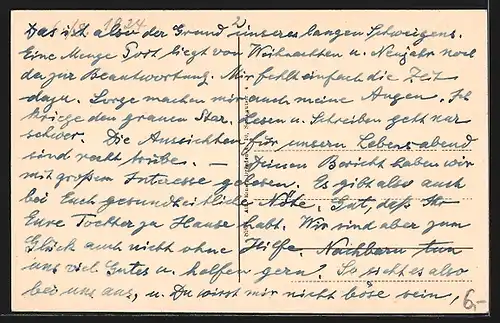 1934
2
Das ist also der Grund unseres langen Schweigens.
Eine Menge Post liegt von Weihnachten u. Neujahr noch
da zur Beantwortung. Mir fehlt einfach die Zeit
dazu. Sorge machen mir auch meine Augen. Ich
kriege den grauen Star. Lesen u. Schreiben geht nur
schwer. Die Aussichten für unsern Lebensabend
sind recht trübe. — Deinen Bericht haben wir
mit großem Interesse gelesen. Es gibt also auch
bei Euch gesundheitliche Nöte. Gut, daß Ihr
Eure Tochter zu Hause habt. Wir sind aber zum
Glück auch nicht ohne Hilfe. Nachbarn tun
uns viel Gutes u. helfen gern. So sieht es also
bei uns aus, u. Du wirst mir nicht böse sein,
6,-